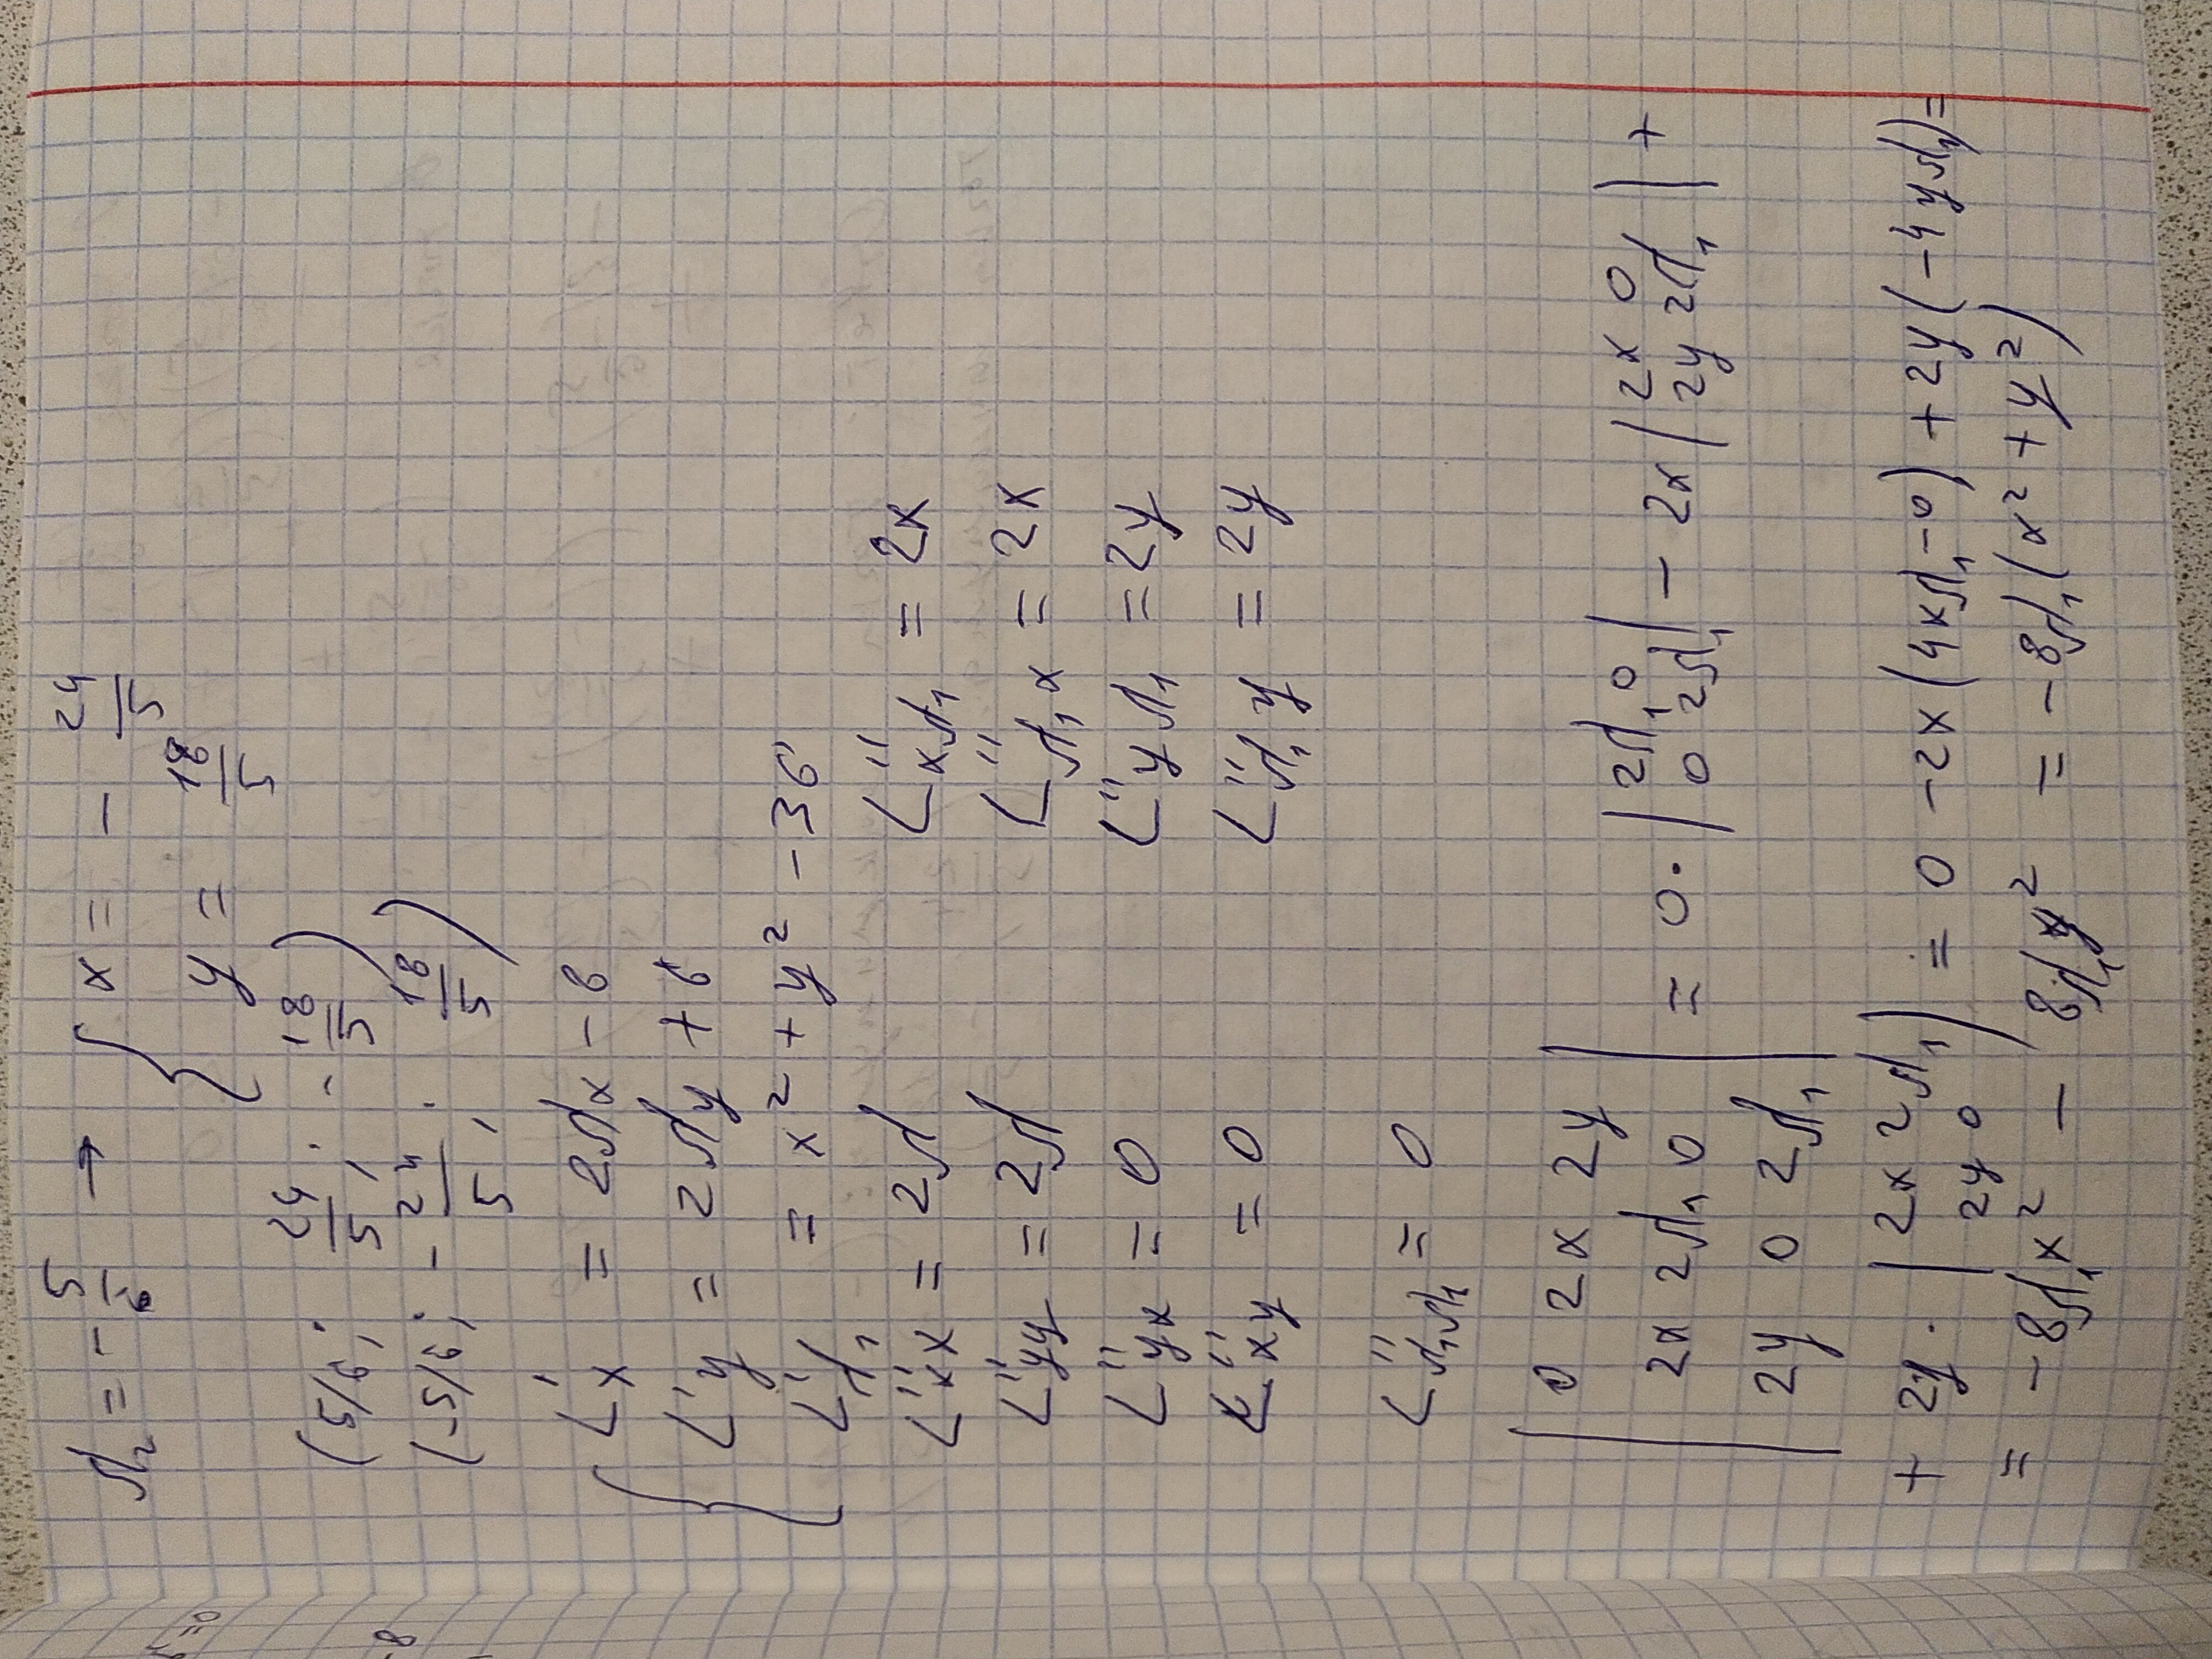 λ₂ = - 5/6 → { x = - 24/5
y = 18/5
(5/6; 24/5; - 18/5)
(-5/6; - 24/5; 18/5)
{ L'x = 2λx - 8
L'y = 2λy + 6
L'λ₁ = x² + y² - 36
L''xx = 2λ L''xλ₁ = 2x
L''yy = 2λ L''λ₁x = 2x
L''yx = 0 L''yλ₁ = 2y
L''xy = 0 L''λ₁y = 2y
L''λ₁λ₁ = 0
| 0 2x 2y |
| 2x 2λ₁ 0 | = 0 · | 2λ₁ 0 ; 0 2λ₁ | - 2x | 2x 0 ; 2y 2λ₁ | +
| 2y 0 2λ₁ |
+ 2y · | 2x 2λ₁ ; 2y 0 | = 0 - 2x(4xλ₁ - 0) + 2y(-4yλ₁) =
= - 8λ₁x² - 8λ₁y² = -8λ₁(x² + y²)